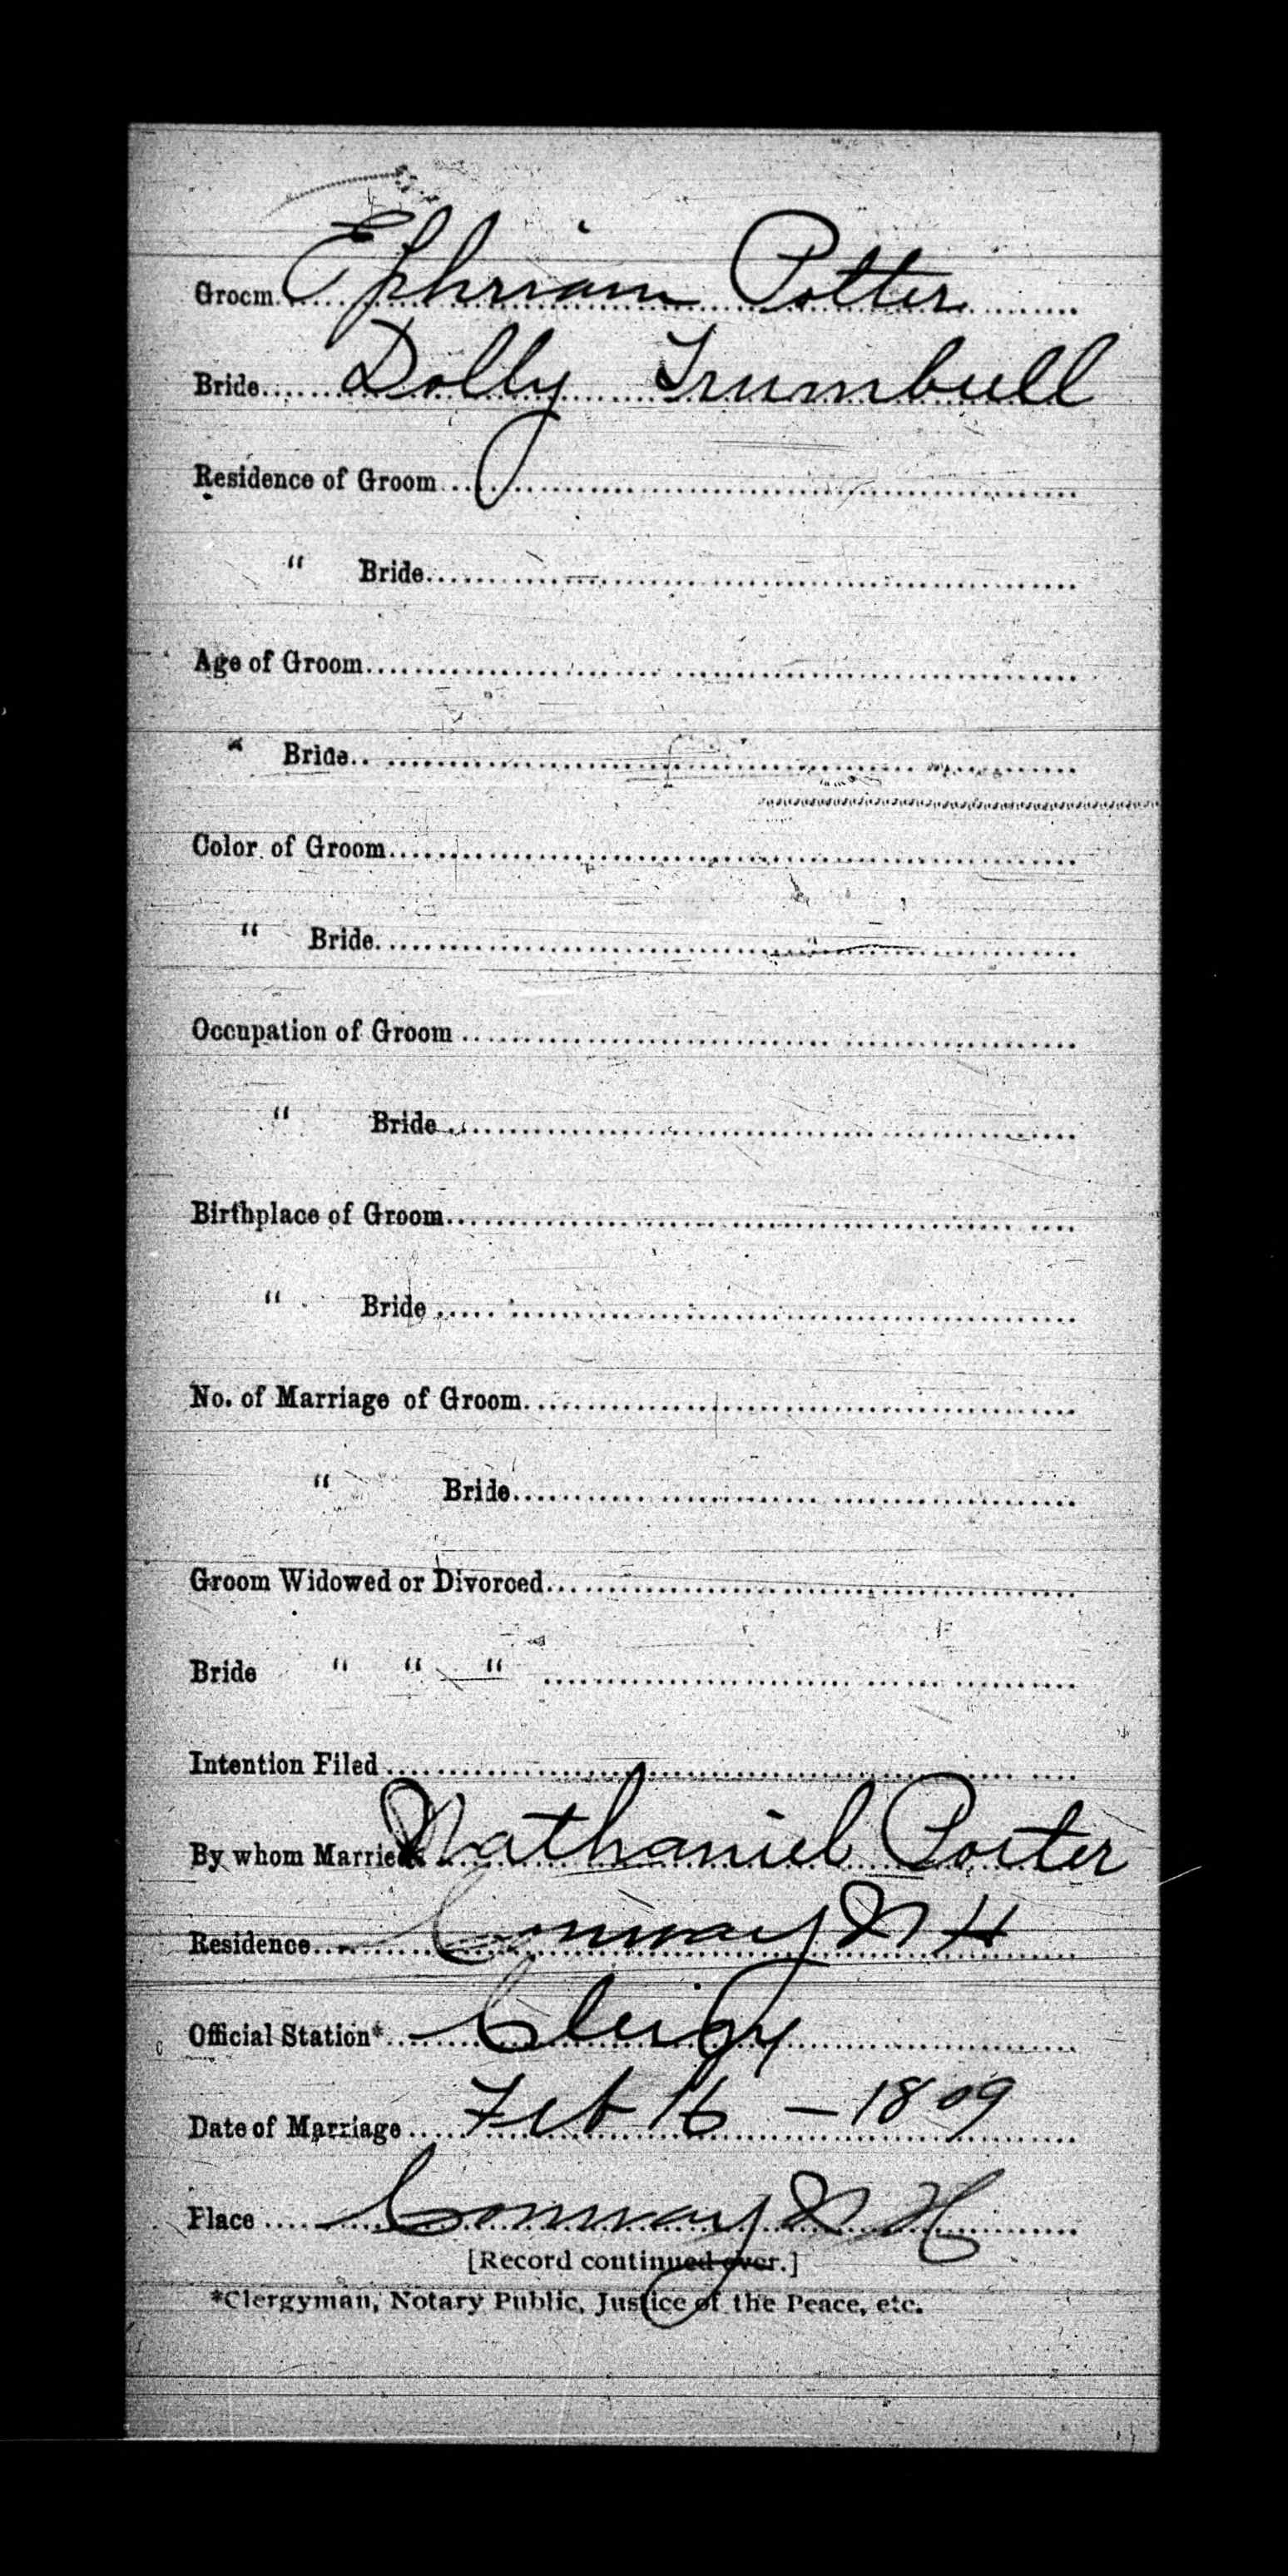 Groom Ephriam Potter
Bride Dolly Trumbull
Residence of Groom
" Bride
Age of Groom
" Bride
Color of Groom
" Bride
Occupation of Groom
" Bride
Birthplace of Groom
" Bride
No. of Marriage of Groom
" Bride
Groom Widowed or Divorced
Bride " " "
Intention Filed
By whom Married Nathaniel Porter
Residence Conway N H
Official Station* Clergy
Date of Marriage Feb 16 - 1809
Place Conway N H
[Record continued over.]
*Clergyman, Notary Public, Justice of the Peace, etc.